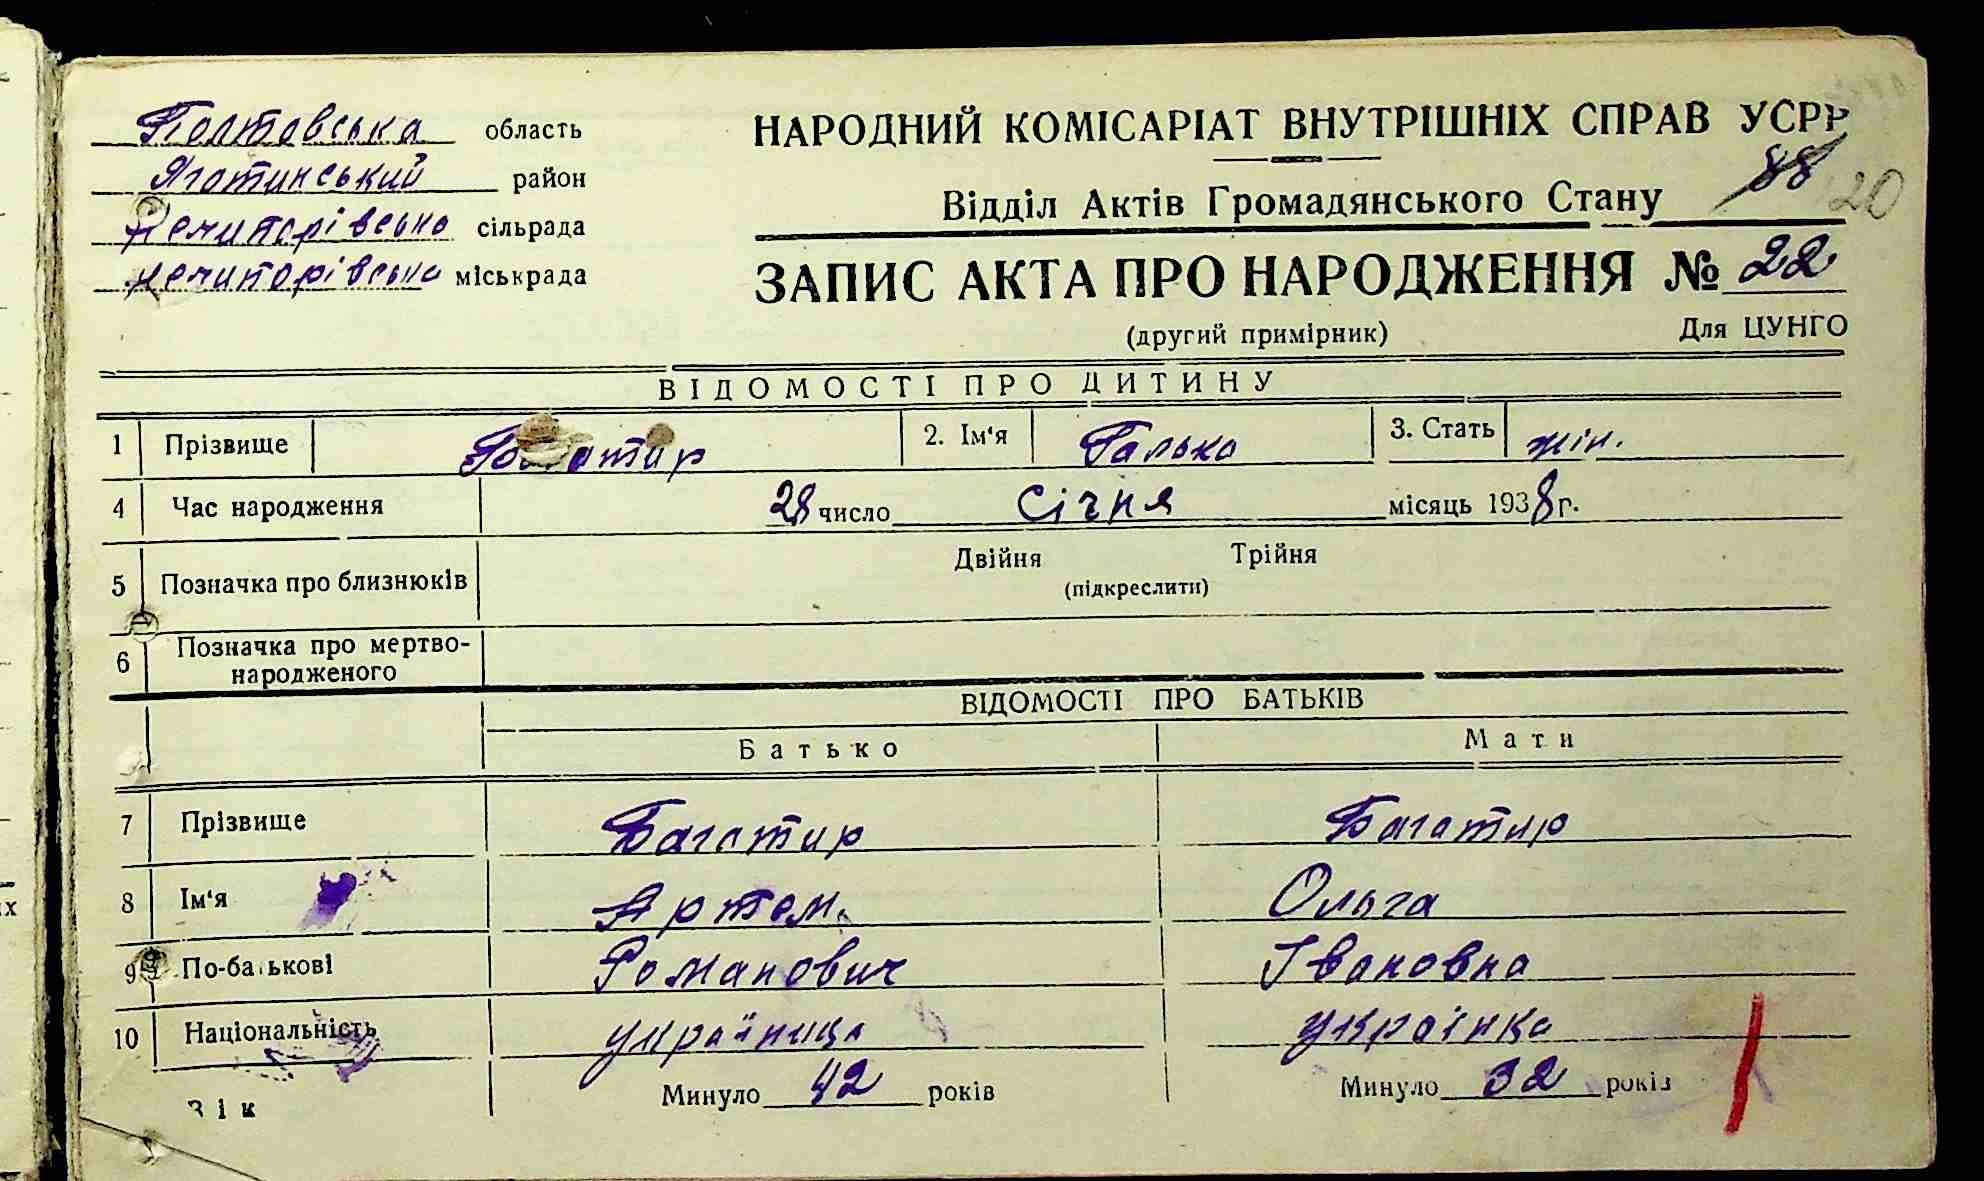 Полтавська область
Яготинський район
Нечипорівська сільрада
Нечипорівська міськрада
НАРОДНИЙ КОМІСАРІАТ ВНУТРІШНІХ СПРАВ УСРР
88 20
Відділ Актів Громадянського Стану
ЗАПИС АКТА ПРО НАРОДЖЕННЯ № 22
(другий примірник) Для ЦУНГО
ВІДОМОСТІ ПРО ДИТИНУ
1 Прізвище Богатир 2. Ім‘я Галька 3. Стать жін.
4 Час народження 28 число Січня місяць 1938 г.
5 Позначка про близнюків Двійня Трійня
(підкреслити)
6 Позначка про мертво-
народженого
ВІДОМОСТІ ПРО БАТЬКІВ
Батько Мати
7 Прізвище Багатир Багатир
8 Ім‘я Артем. Ольга
9 По-батькові Романович Івановна
10 Національність українця українка
Вік Минуло 42 років Минуло 32 років